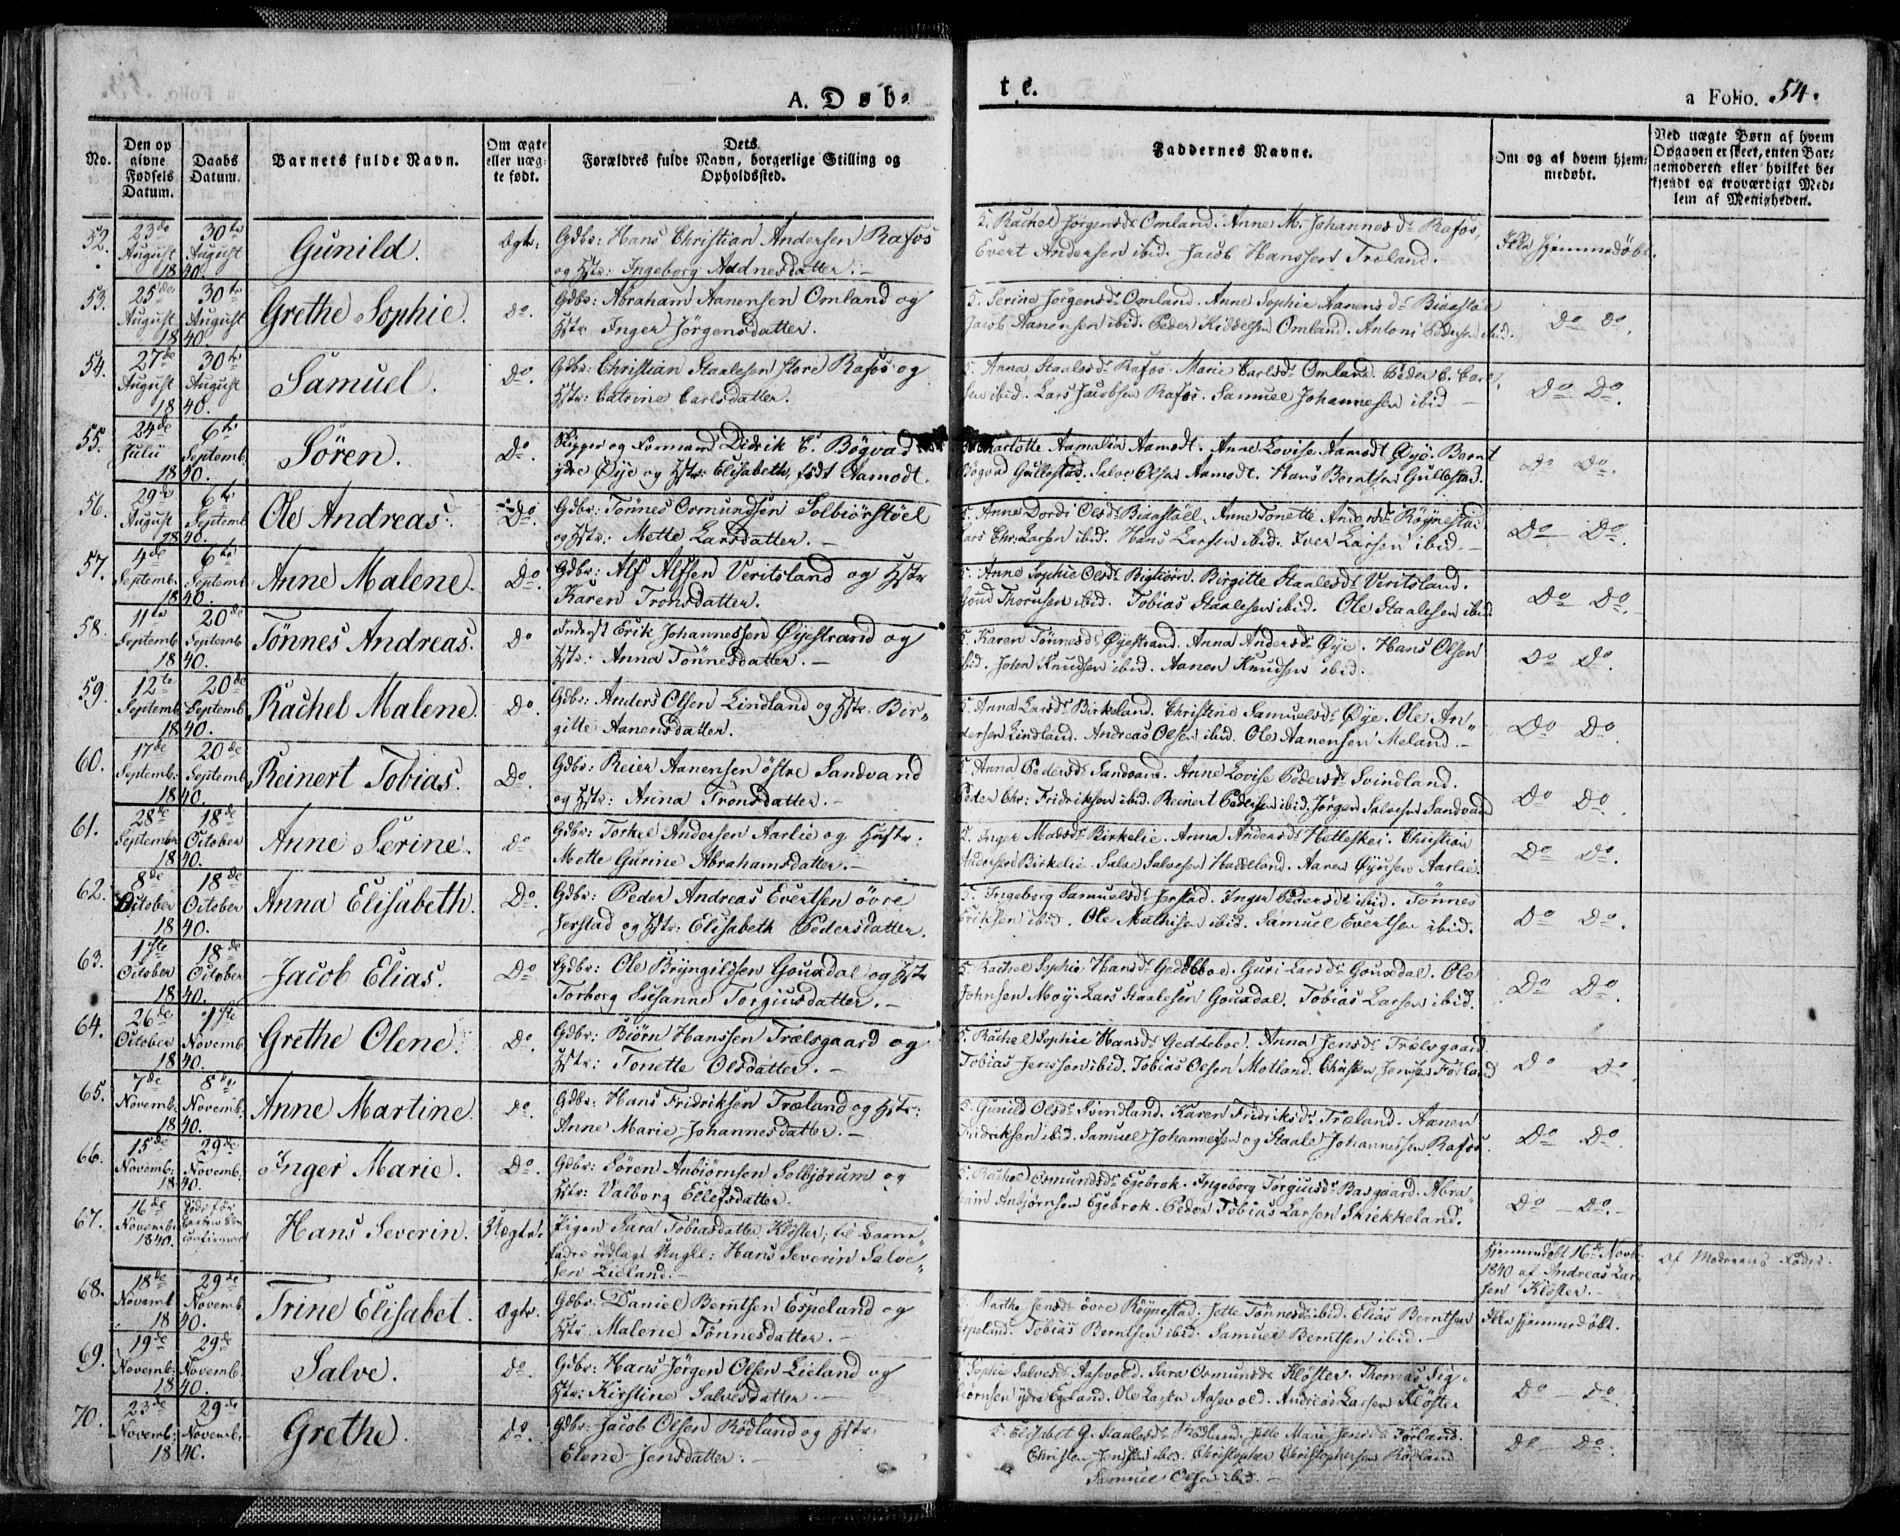 A. Døb-
te.
a Folio. 54.
No. Den opgivne Fødsels Datum. Daabs Datum. Barnets fulde Navn. Om ægte eller uægte født. Dets Forældres fulde Navn, borgerlige Stilling og Opholdssted. Faddernes Navne. Om og af hvem hjemmedøbt. Ved uægte Børn af hvem Opgaven er skeet, enten Barnemoderen eller hvilket bekjendt og troværdigt Medlem af Menigheden.
52. 23de August 30te August 1840. Gunild. Ægte: Gdbr: Hans Christian Andersen Rafos
og Hstr: Ingeborg Aadnesdatter.
5. Rachel Jørgensdr Omland. Anne M. Johannesdr Rafos,
Evert Andersen ibid. Jacob Hanssen Træland. Ikke hjemmedøbt.
53. 25de August 30te August 1840. Grethe Sophie. Do. Gdbr: Abraham Aanensen Omland og
Hstr: Inger Jørgensdatter.
5. Serine Jørgensdr Omland. Anne Sophie Aanensdr
Jacob Aanensen ibid. Peder Omland. Antoni Pedersen ibid. Do Do.
54. 27de August 30te August 1840. Samuel. Do. Gdbr: Christian Staalesen store Rafos og
Hstr: Catrine Carlsdatter.
5. Anna Staalesdr Rafos. Marie Carlsdr Omland. Peder C. Carl-
sen ibid. Lars Jacobsen Rafos. Samuel Johannesen ibid Do Do.
55. 24de Julii 6te Septemb. 1840. Sören. Do. Skipper og Formand Didrik C. Bøgvad
ydre Øye og Hstr: Elisabeth, født Aamodt.
Charlotte Aamalia Aamodt. Anne Lovise Aamodt Øye. Bernt
Bøgvad Gullestad. Salve Olsen Aamodt. Hans Berntsen Gullestad. Do Do.
56. 29de August 6te Septemb. 1840. Ole Andreas. Do. Gdbr: Tönnes Osmundsen Solbiörstöel
og Hstr: Mette Larsdatter.
5. Anne Dordi Olsdr Anne Tonette Andersdr Röynestad
Lars Chr: Larsen ibid. Hans Larsen ibid. Iver Larsen ibid. Do Do.
57. 4de Septemb: 6te Septemb: 1840. Anne Malene. Do. Gdbr: Alf Alfsen Veritsland og Hstr
Karen Tronsdatter.
5. Anne Sophie Olsdr Birgitte Staalesdr Veritsland.
Thorusen ibid. Tobias Staalesen ibid. Ole Staalesen ibid Do Do.
58. 11te Septemb 20de Septemb 1840. Tönnes Andreas. Do Inderst Erik Johannessen Øyestrand og
Hstr: Anna Tönnesdatter.
5. Karen Tönnesdr Øyestrand. Anna Andersdr Øye. Hans Olsen
ibid. John Knudsen ibid. Aanen Knudsen ibid. Do Do.
59. 12te Septemb 20de Septemb 1840. Rachel Malene. Do. Gdbr: Anders Olsen Lindland og Hstr. Bir-
gitte Aanensdatter.
5. Anna Larsdr Birkeland. Christine Samuelsdr Øye. Ole An-
dersen Lindland. Andreas Olsen ibid. Ole Aanensen Meland. Do Do.
60. 17de Septemb: 20de Septemb 1840. Reinert Tobias. Do. Gdbr: Reier Aanensen östre Sandvand
og Hstr: Anna Tronsdatter.
5. Anna Pedersdr Sandvand. Anne Lovise Pedersdr Svindland.
Peder Chr: Fridriksen ibid. Reinert Pedersen ibid. Jørgen Salvesen Sandvand Do Do.
61. 28de September 18de October 1840. Anne Serine. Do Gdbr: Torkel Andersen Aarlie og Hustr:
Mette Gurine Abrahamsdatter.
5. Inger Madsdr Birkelie. Anna Andersdr Hetleskei. Christian
Andersen Birkelie. Salve Salvesen Haddeland. Aanen Aarlie. Do Do.
62. 8de October 18de October 1840. Anna Elisabeth. Do. Gdbr: Peder Andreas Evertsen övre
Jerstad og Hstr: Elisabeth Pedersdatter.
5. Ingeborg Samuelsdr Jerstad. Inger Pedersdr ibid. Tönnes
Eriksen ibid. Ole Mathisen ibid. Samuel Evertsen ibid. Do Do.
63. 1ste October 18de October 1840. Jacob Elias. Do Gdbr: Ole Bryngildsen Gousdal og Hstr
Torborg Susanne Torgiusdatter.
5. Rachel Sophie Hansdr Geddeboe. Guri Larsdr Gousdal. Ole
Johnsen Moy. Lars Staalesen Gousdal. Tobias Larsen ibid. Do Do.
64. 26de October 1ste Novemb. 1840. Grethe Olene. Do. Gdbr: Biörn Hanssen Trælsgaard og
Hstr: Tonette Olsdatter.
5. Rachel Sophie Hansdr Geddeboe. Anna Jensdr Trælsgaard.
Tobias Jenssen ibid. Tobias Olsen Motland. Christen Jensen Do Do.
65. 7de Novemb: 8de Novemb. 1840. Anne Martine. Do. Gdbr: Hans Fridriksen Træland og Hstr:
Anne Marie Johannesdatter.
5. Gunild Olsdr Svindland. Karen Fridriksdr Træland. Aanen
Fridriksen ibid. Samuel Johannessen og Staale Johannessen Rafos. Do Do.
66. 15de Novemb: 29de Novemb: 1840. Inger Marie. Do. Gdbr: Sören Anbiörnsen Solbjörum og
Hstr: Valborg Ellefsdatter.
5. Rachel Osmundsdr Egebrok. Ingeborg Torgiusdr Basgaard. Abra-
ham Anbjörnsen Egebrok. Peder Tobias Larsen Skiekkeland. Do Do.
67. 16de Novemb. 1840. Hans Severin. Uægte: Pigen Sara Tobiasdatter Klöster; til Barne-
fader udlagt Ungkl: Hans Severin Salve-
sen Lieland.
Hjemmedöbt 16de Novb:
1840 af Andreas Lar-
sen Klöster. Af Moderens Fader.
68. 18de Novemb 29de Novemb. 1840. Trine Elisabet. Ægte. Gdbr: Daniel Berntsen Espeland og
Hstr. Malene Tönnesdatter.
Marthe Jensdr övre Röynestad. Jette Tönnesdr ibid. Elias Berntsen
Espeland. Tobias Berntsen ibid. Samuel Berntsen ibid. Ikke hjemmedöbt.
69. 19de Novemb: 29de Novemb. 1840. Salve. Do. Gdbr: Hans Jörgen Olsen Lieland og
Hstr: Kirstine Salvesdatter.
Sophie Salvesdr Aasevold. Sara Osmundsdr Klöster. Thomas Sig-
biörnsen ydre Egeland. Ole Larsen Aasevold. Andreas Larsen Klöster Do Do.
70. 23de Novemb: 29de Novemb: 1840. Grethe. Do. Gdbr: Jacob Olsen Rödland og Hstr:
Elene Jensdatter.
5. Elisabet G. Staalesdr Rödland. Jette Marie Jensdr Förland.
Christen Jenssen ibid. Christopher Christophersen Rödland
Samuel Olsen ibid. Do Do.